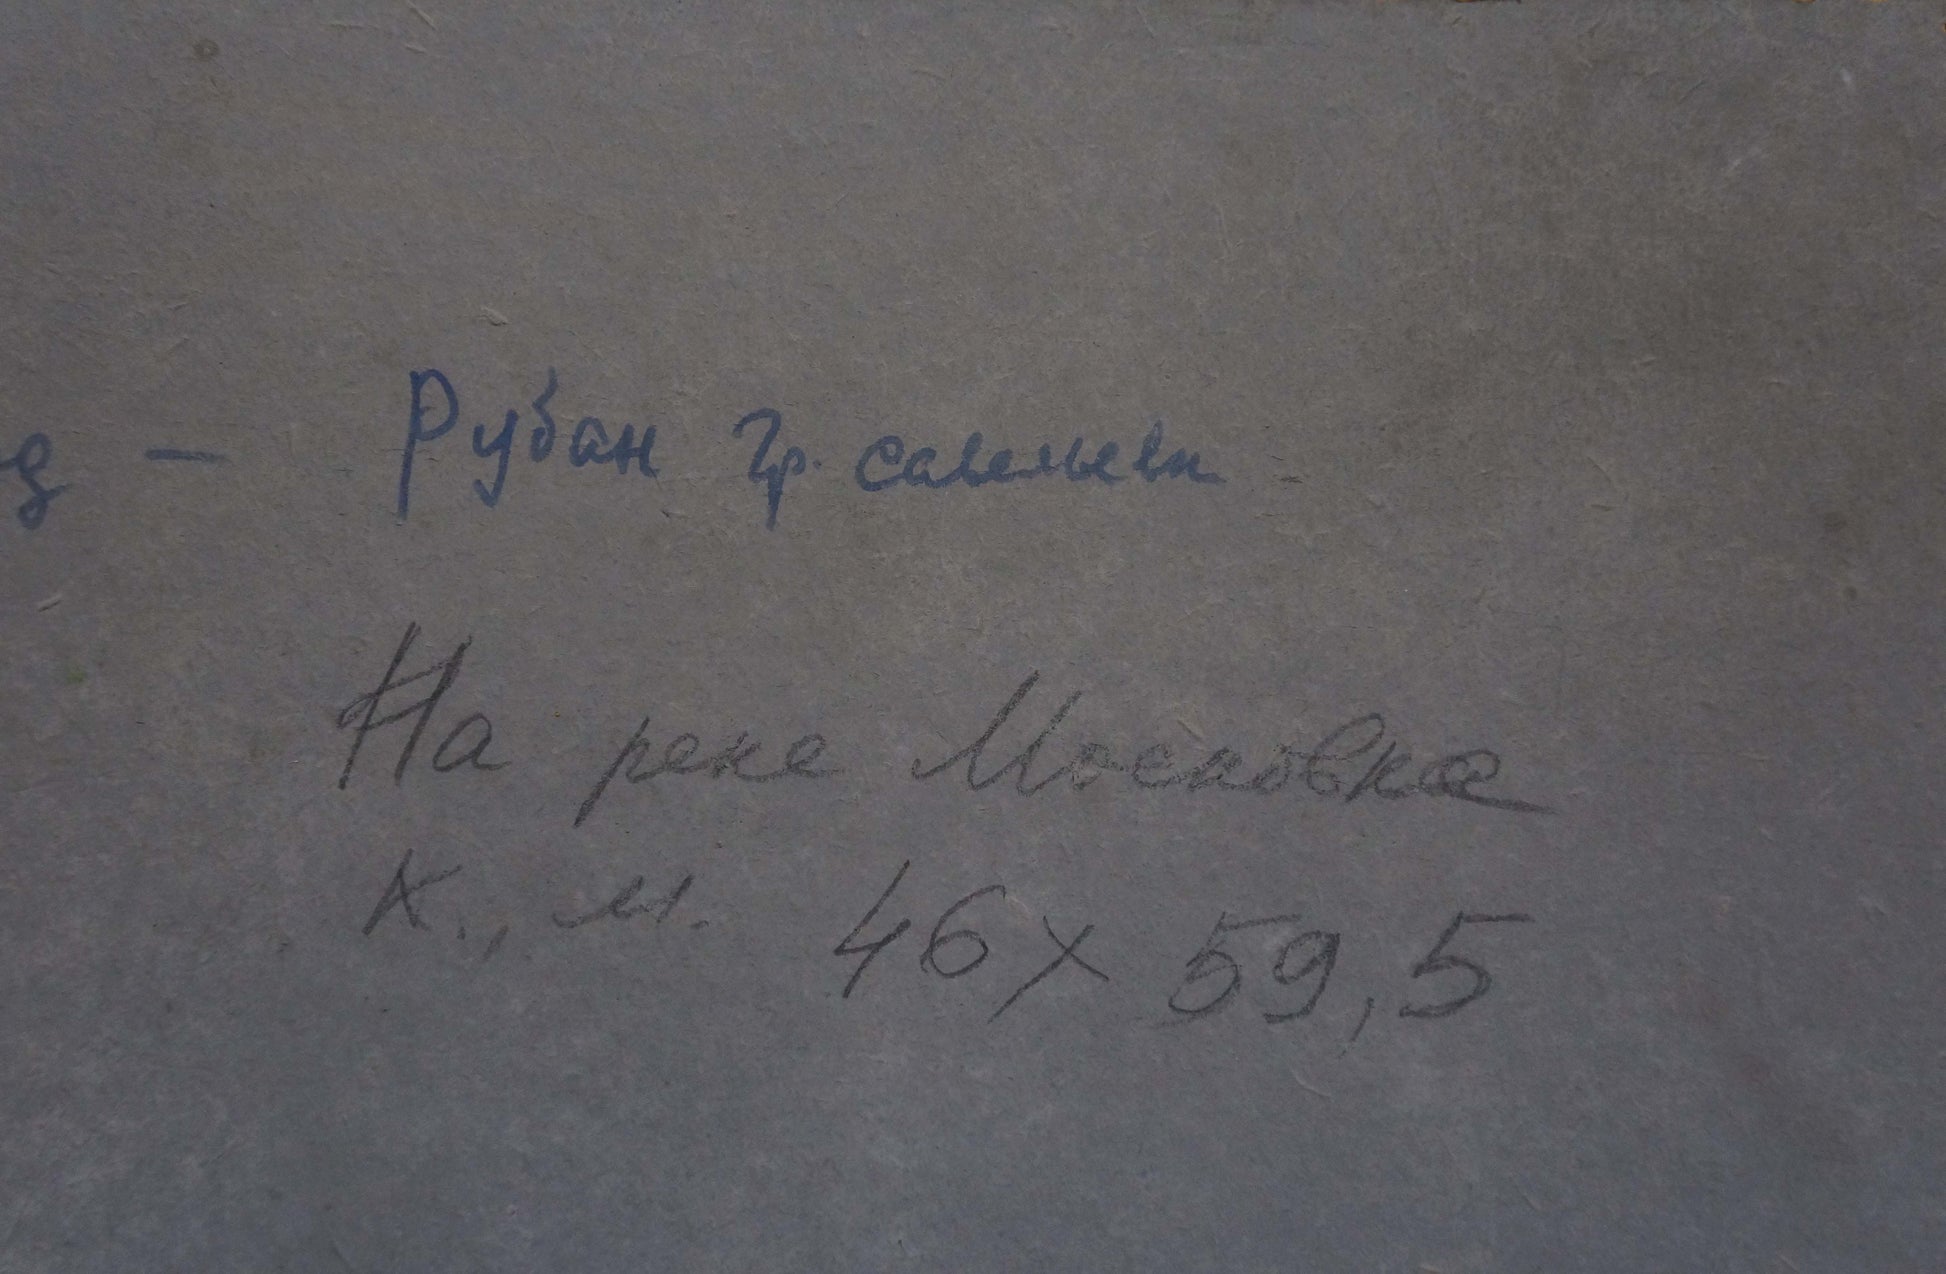 д — Рубан Гр. Савельеви
На реке Московка
К., м. 46 х 59,5